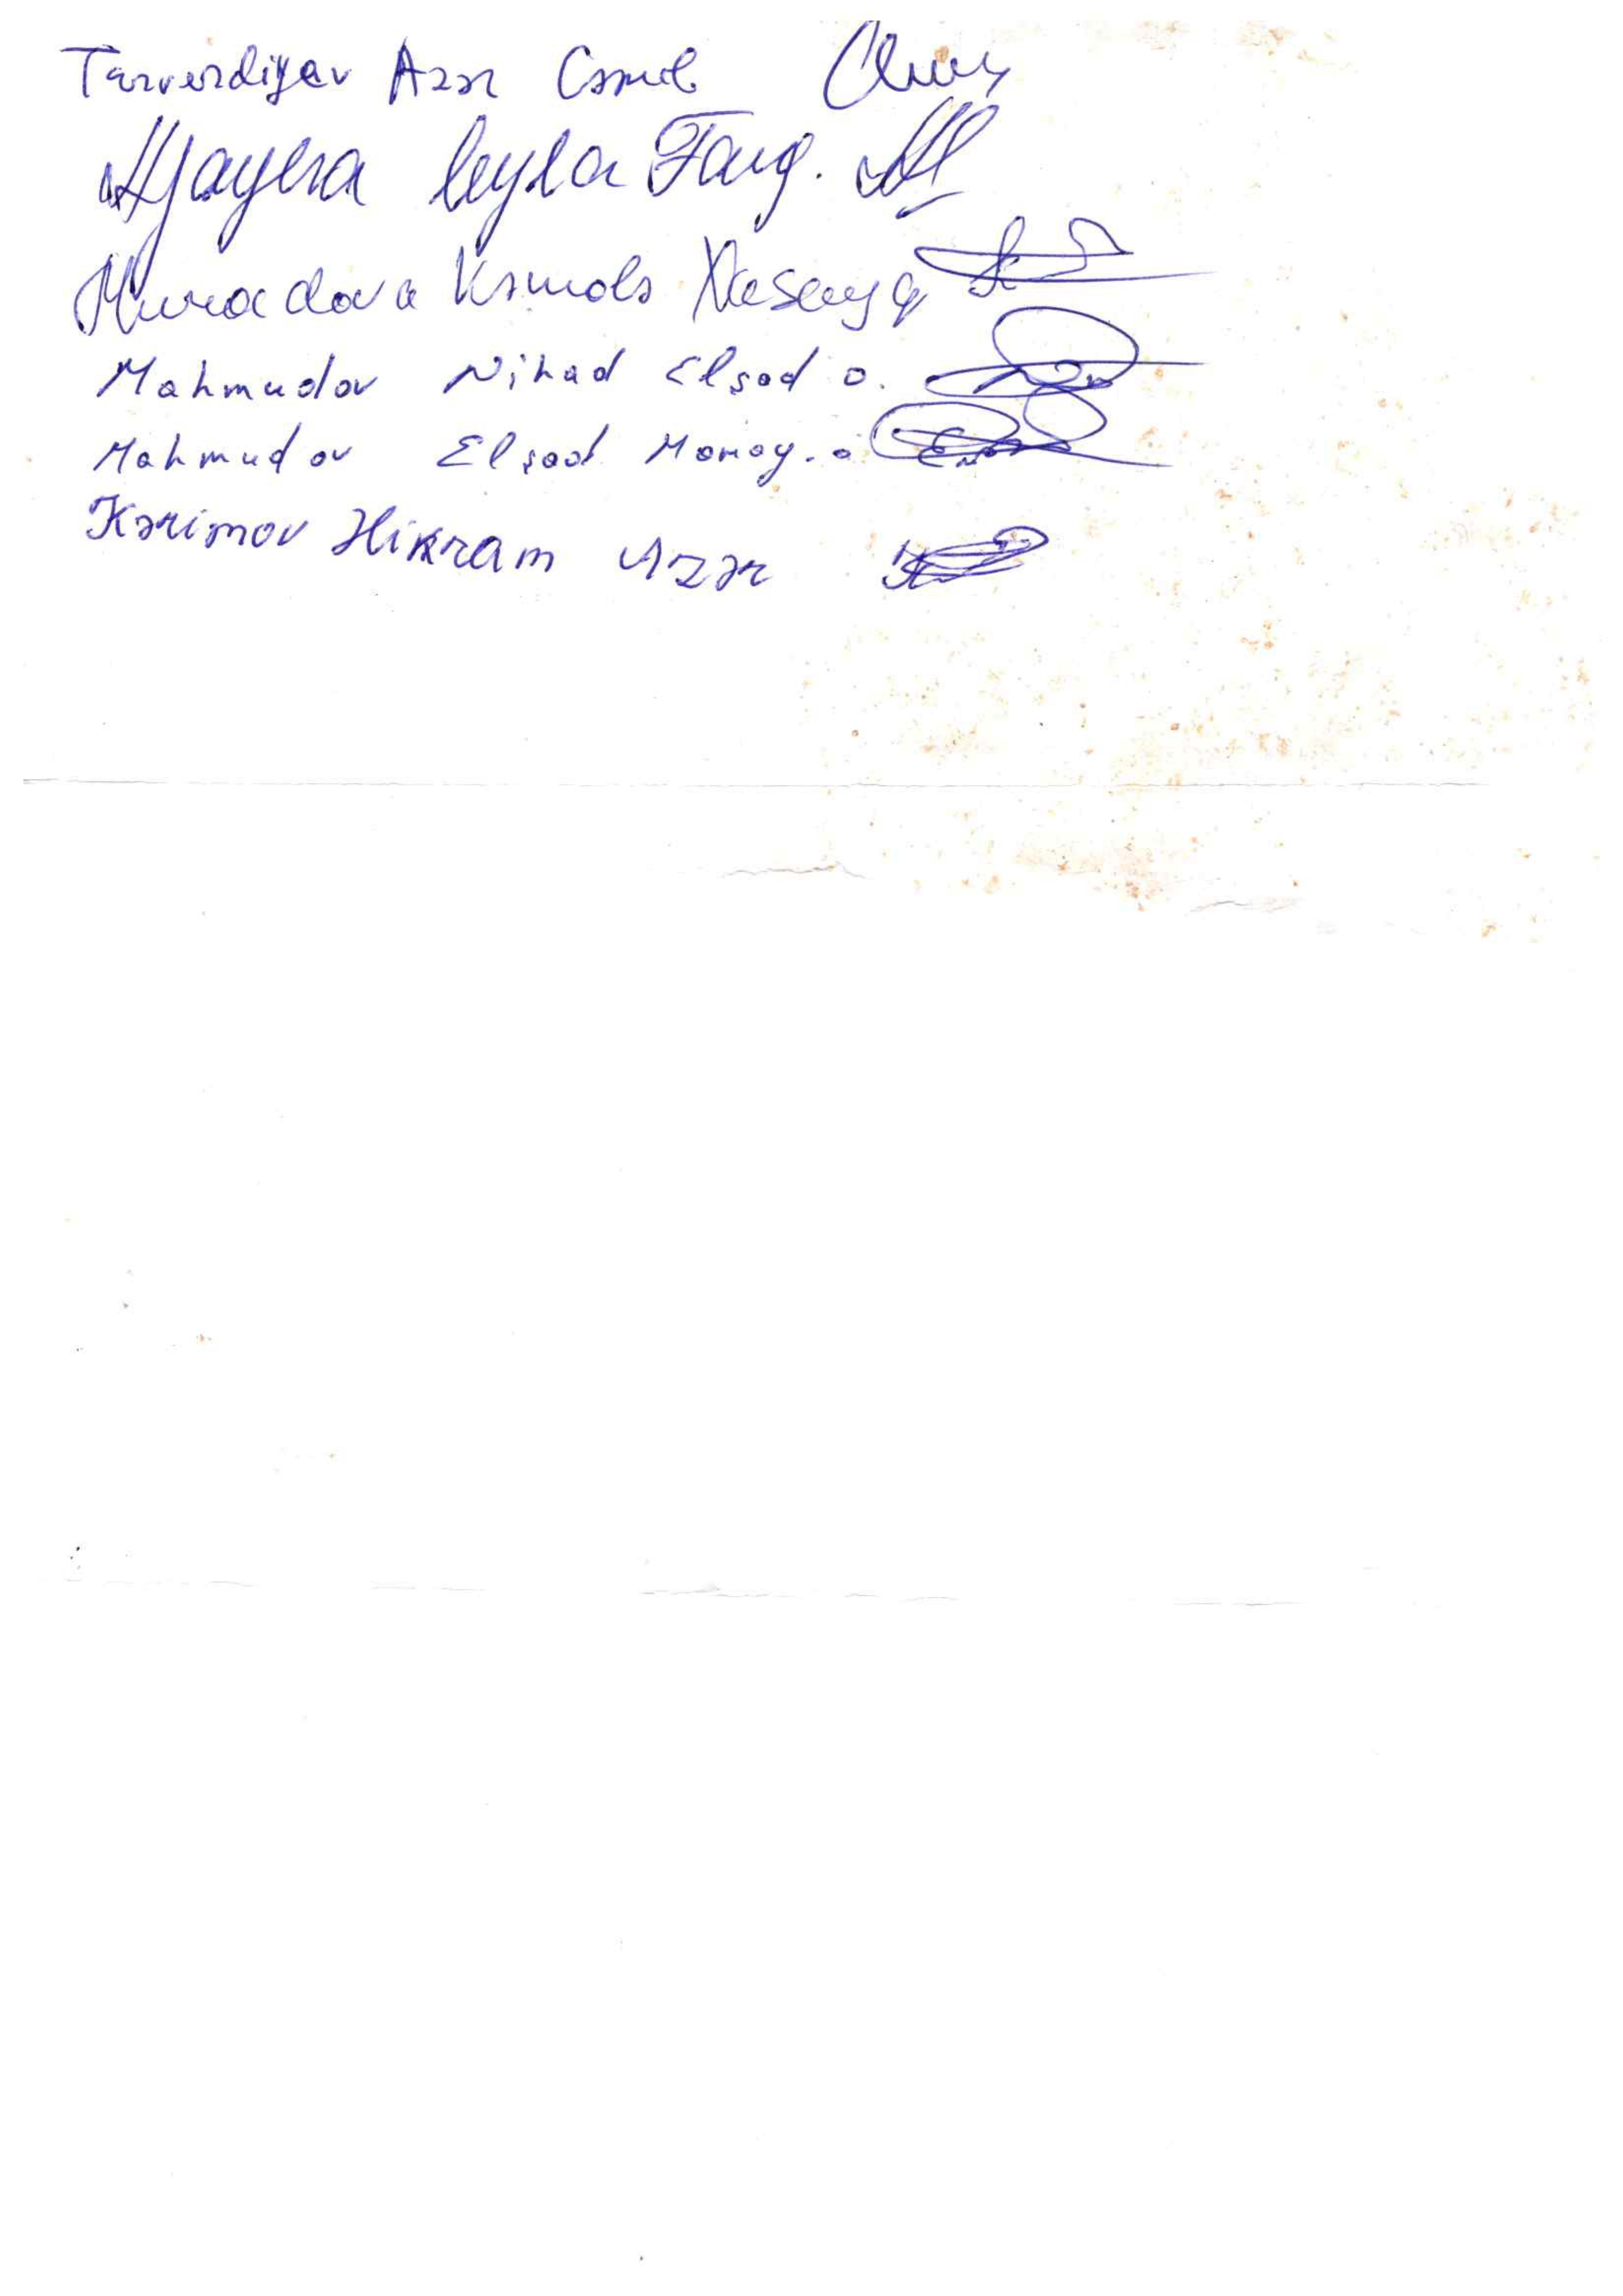 Tarverdiyev Azər Cəmil
Ağayeva Leyla Faiq.
Muradova Kəmalə Xasay q
Mahmudov Nihad Elşad o.
Mahmudov Elşad Monoy. o
Kərimov Hikram Azər